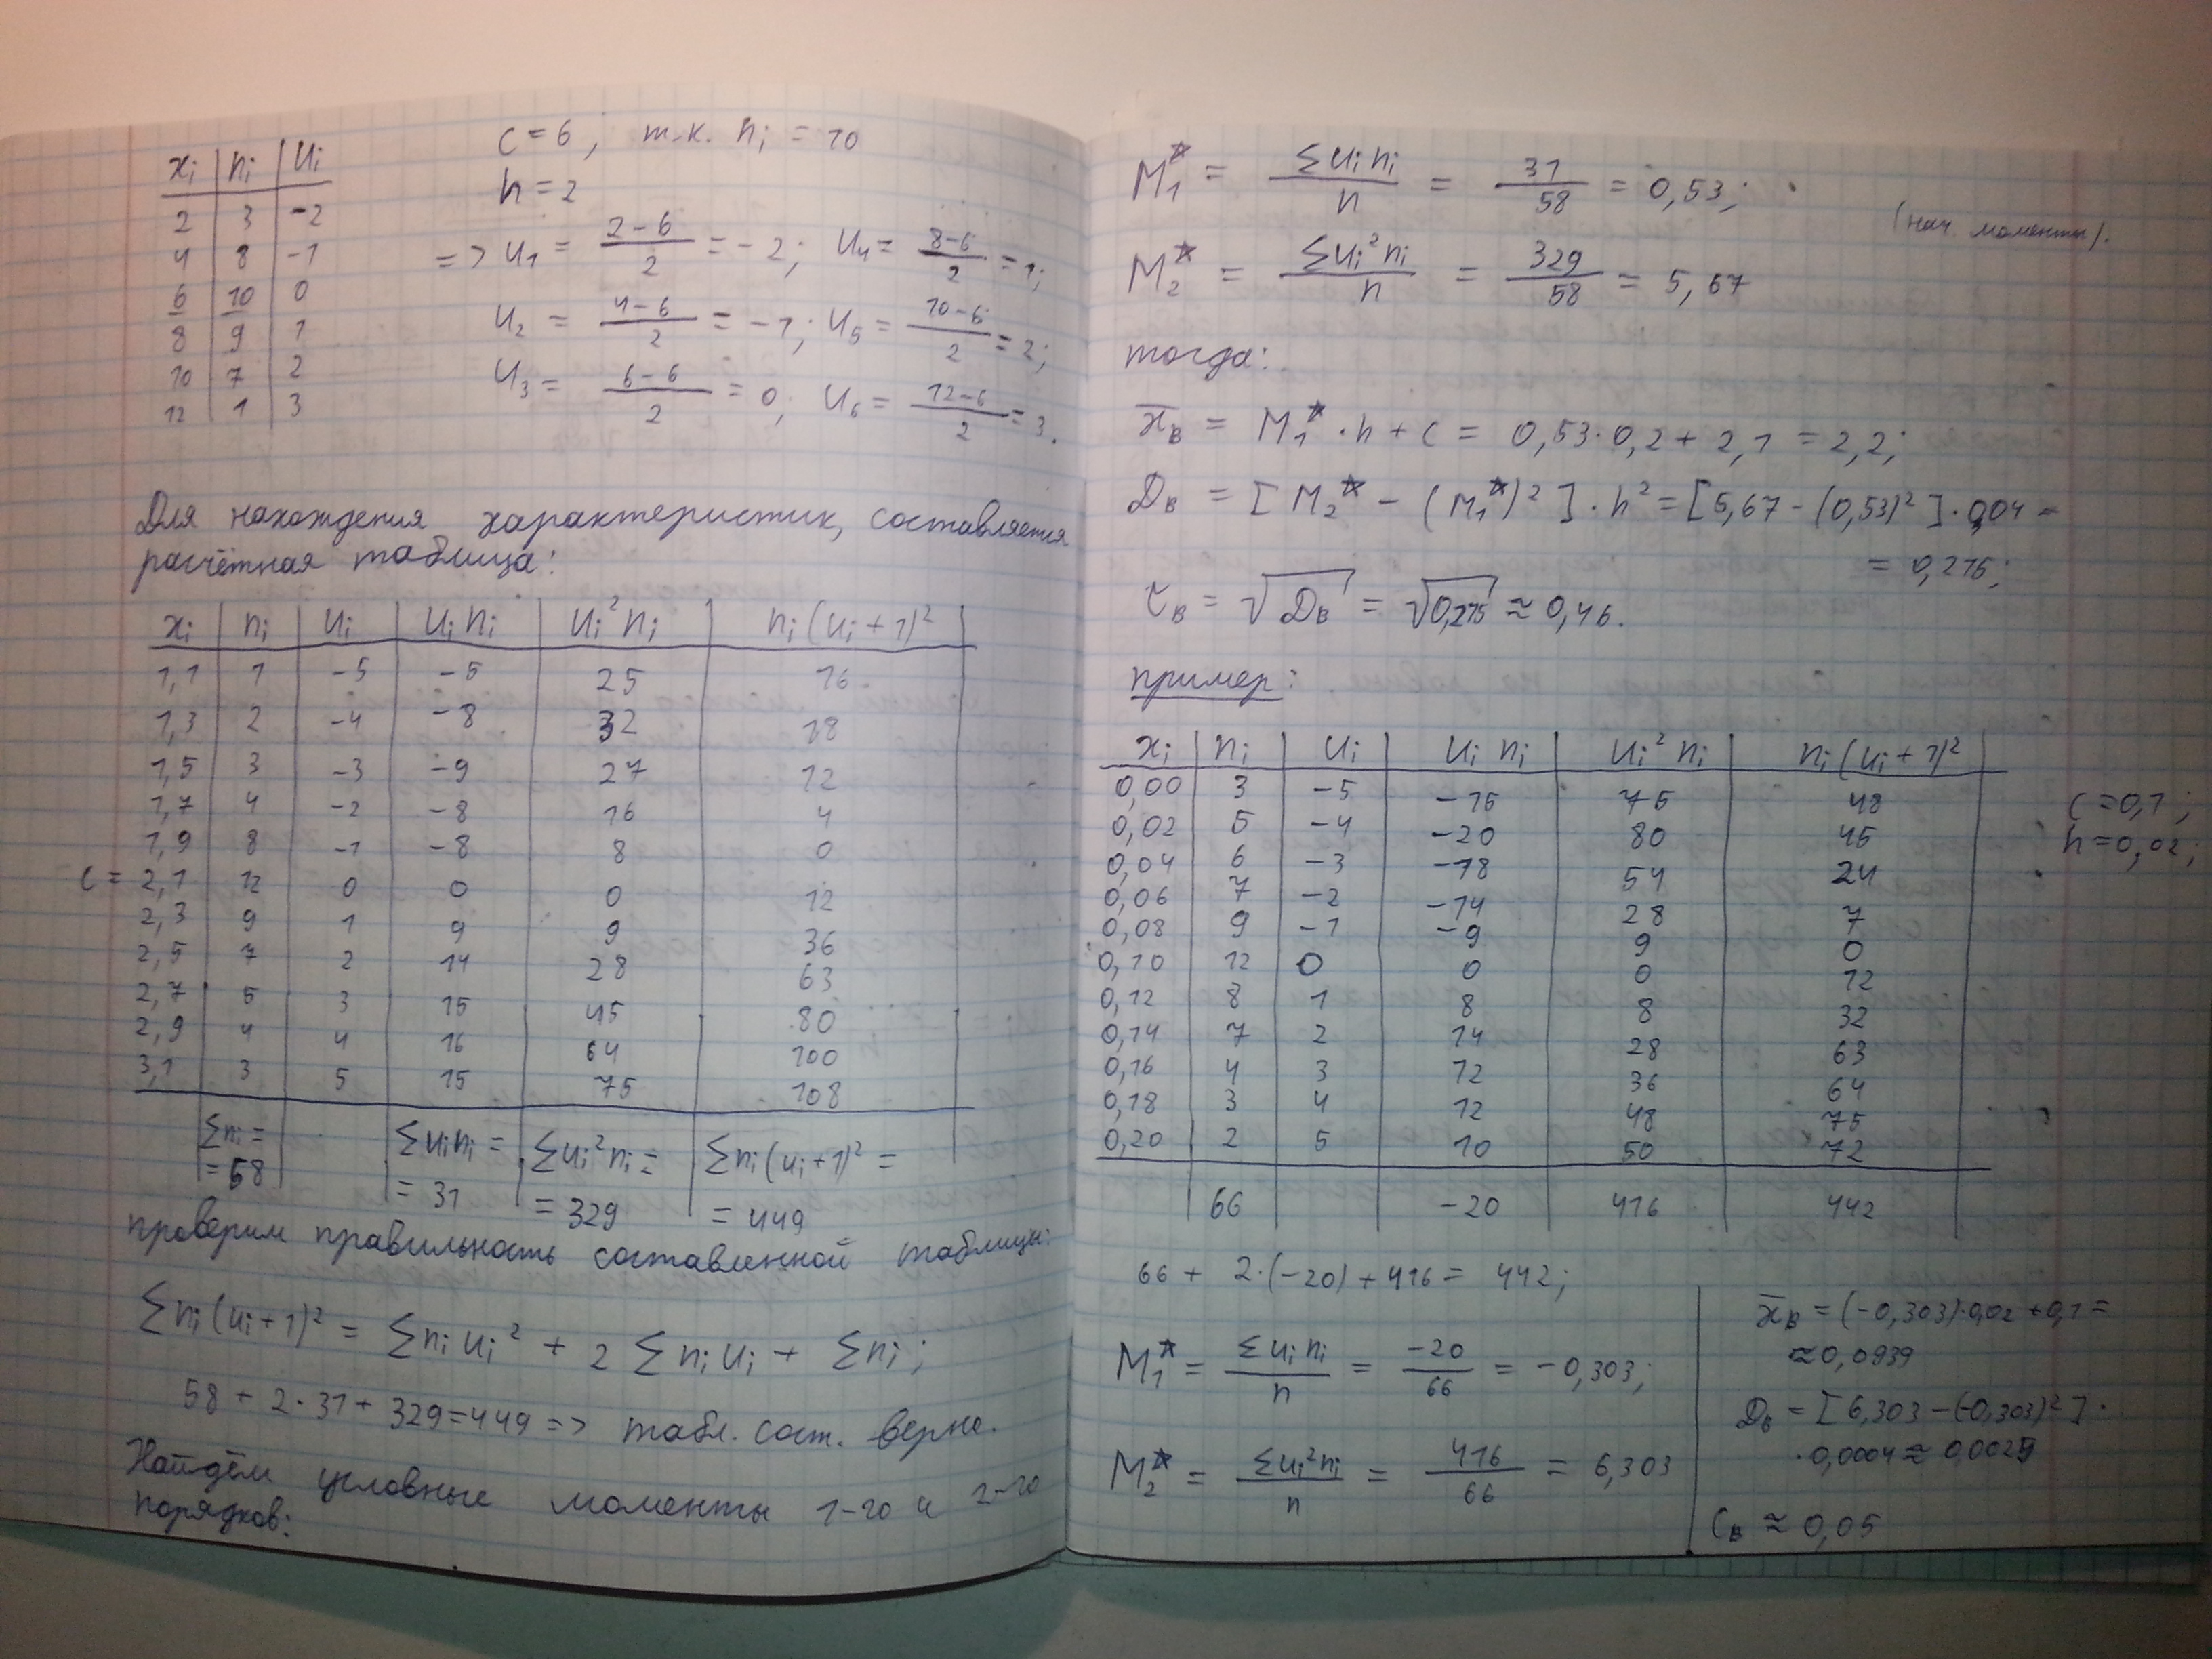 xi | ni | Ui
2 | 3 | -2
4 | 8 | -1
6 | 10 | 0
8 | 9 | 1
10 | 7 | 2
12 | 1 | 3
c = 6, т.к. ni = 10
h = 2
=> U1 = (2-6)/2 = -2; U4 = (8-6)/2 = 1;
U2 = (4-6)/2 = -1; U5 = (10-6)/2 = 2;
U3 = (6-6)/2 = 0; U6 = (12-6)/2 = 3.
Для нахождения характеристик, составляется
расчётная таблица:
xi | ni | Ui | Ui ni | Ui² ni | ni (Ui + 1)²
1,1 | 1 | -5 | -5 | 25 | 16
1,3 | 2 | -4 | -8 | 32 | 18
1,5 | 3 | -3 | -9 | 27 | 12
1,7 | 4 | -2 | -8 | 16 | 4
1,9 | 8 | -1 | -8 | 8 | 0
c = 2,1 | 12 | 0 | 0 | 0 | 12
2,3 | 9 | 1 | 9 | 9 | 36
2,5 | 7 | 2 | 14 | 28 | 63
2,7 | 5 | 3 | 15 | 45 | 80
2,9 | 4 | 4 | 16 | 64 | 100
3,1 | 3 | 5 | 15 | 75 | 108
Σni = | Σui ni = | Σui² ni = | Σni (ui + 1)² =
= 58 | = 31 | = 329 | = 449
проверим правильность составленной таблицы:
Σni (ui + 1)² = Σni ui² + 2 Σni ui + Σni ;
58 + 2·31 + 329 = 449 => табл. сост. верно.
Найдём условные моменты 1-го и 2-го
порядков:
M1* = Σ Ui ni / n = 31/58 = 0,53;
(нач. моменты).
M2* = Σ Ui² ni / n = 329/58 = 5,67
тогда:
x̄в = M1* · h + c = 0,53·0,2 + 2,1 = 2,2;
Dв = [M2* - (M1*)²] · h² = [5,67 - (0,53)²] · 0,04 =
= 0,215;
τв = √Dв = √0,215 ≈ 0,46.
пример:
xi | ni | Ui | Ui ni | Ui² ni | ni (Ui + 1)²
0,00 | 3 | -5 | -15 | 75 | 48
0,02 | 5 | -4 | -20 | 80 | 45
0,04 | 6 | -3 | -18 | 54 | 24
0,06 | 7 | -2 | -14 | 28 | 7
0,08 | 9 | -1 | -9 | 9 | 0
0,10 | 12 | 0 | 0 | 0 | 12
0,12 | 8 | 1 | 8 | 8 | 32
0,14 | 7 | 2 | 14 | 28 | 63
0,16 | 4 | 3 | 12 | 36 | 64
0,18 | 3 | 4 | 12 | 48 | 75
0,20 | 2 | 5 | 10 | 50 | 72
66 | -20 | 416 | 442
c = 0,1;
h = 0,02;
66 + 2·(-20) + 416 = 442;
M1* = Σ Ui ni / n = -20/66 = -0,303;
M2* = Σ Ui² ni / n = 416/66 = 6,303
x̄в = (-0,303)·0,02 + 0,1 =
≈ 0,0939
Dв = [6,303 - (-0,303)²] ·
· 0,0004 ≈ 0,0025
τв ≈ 0,05